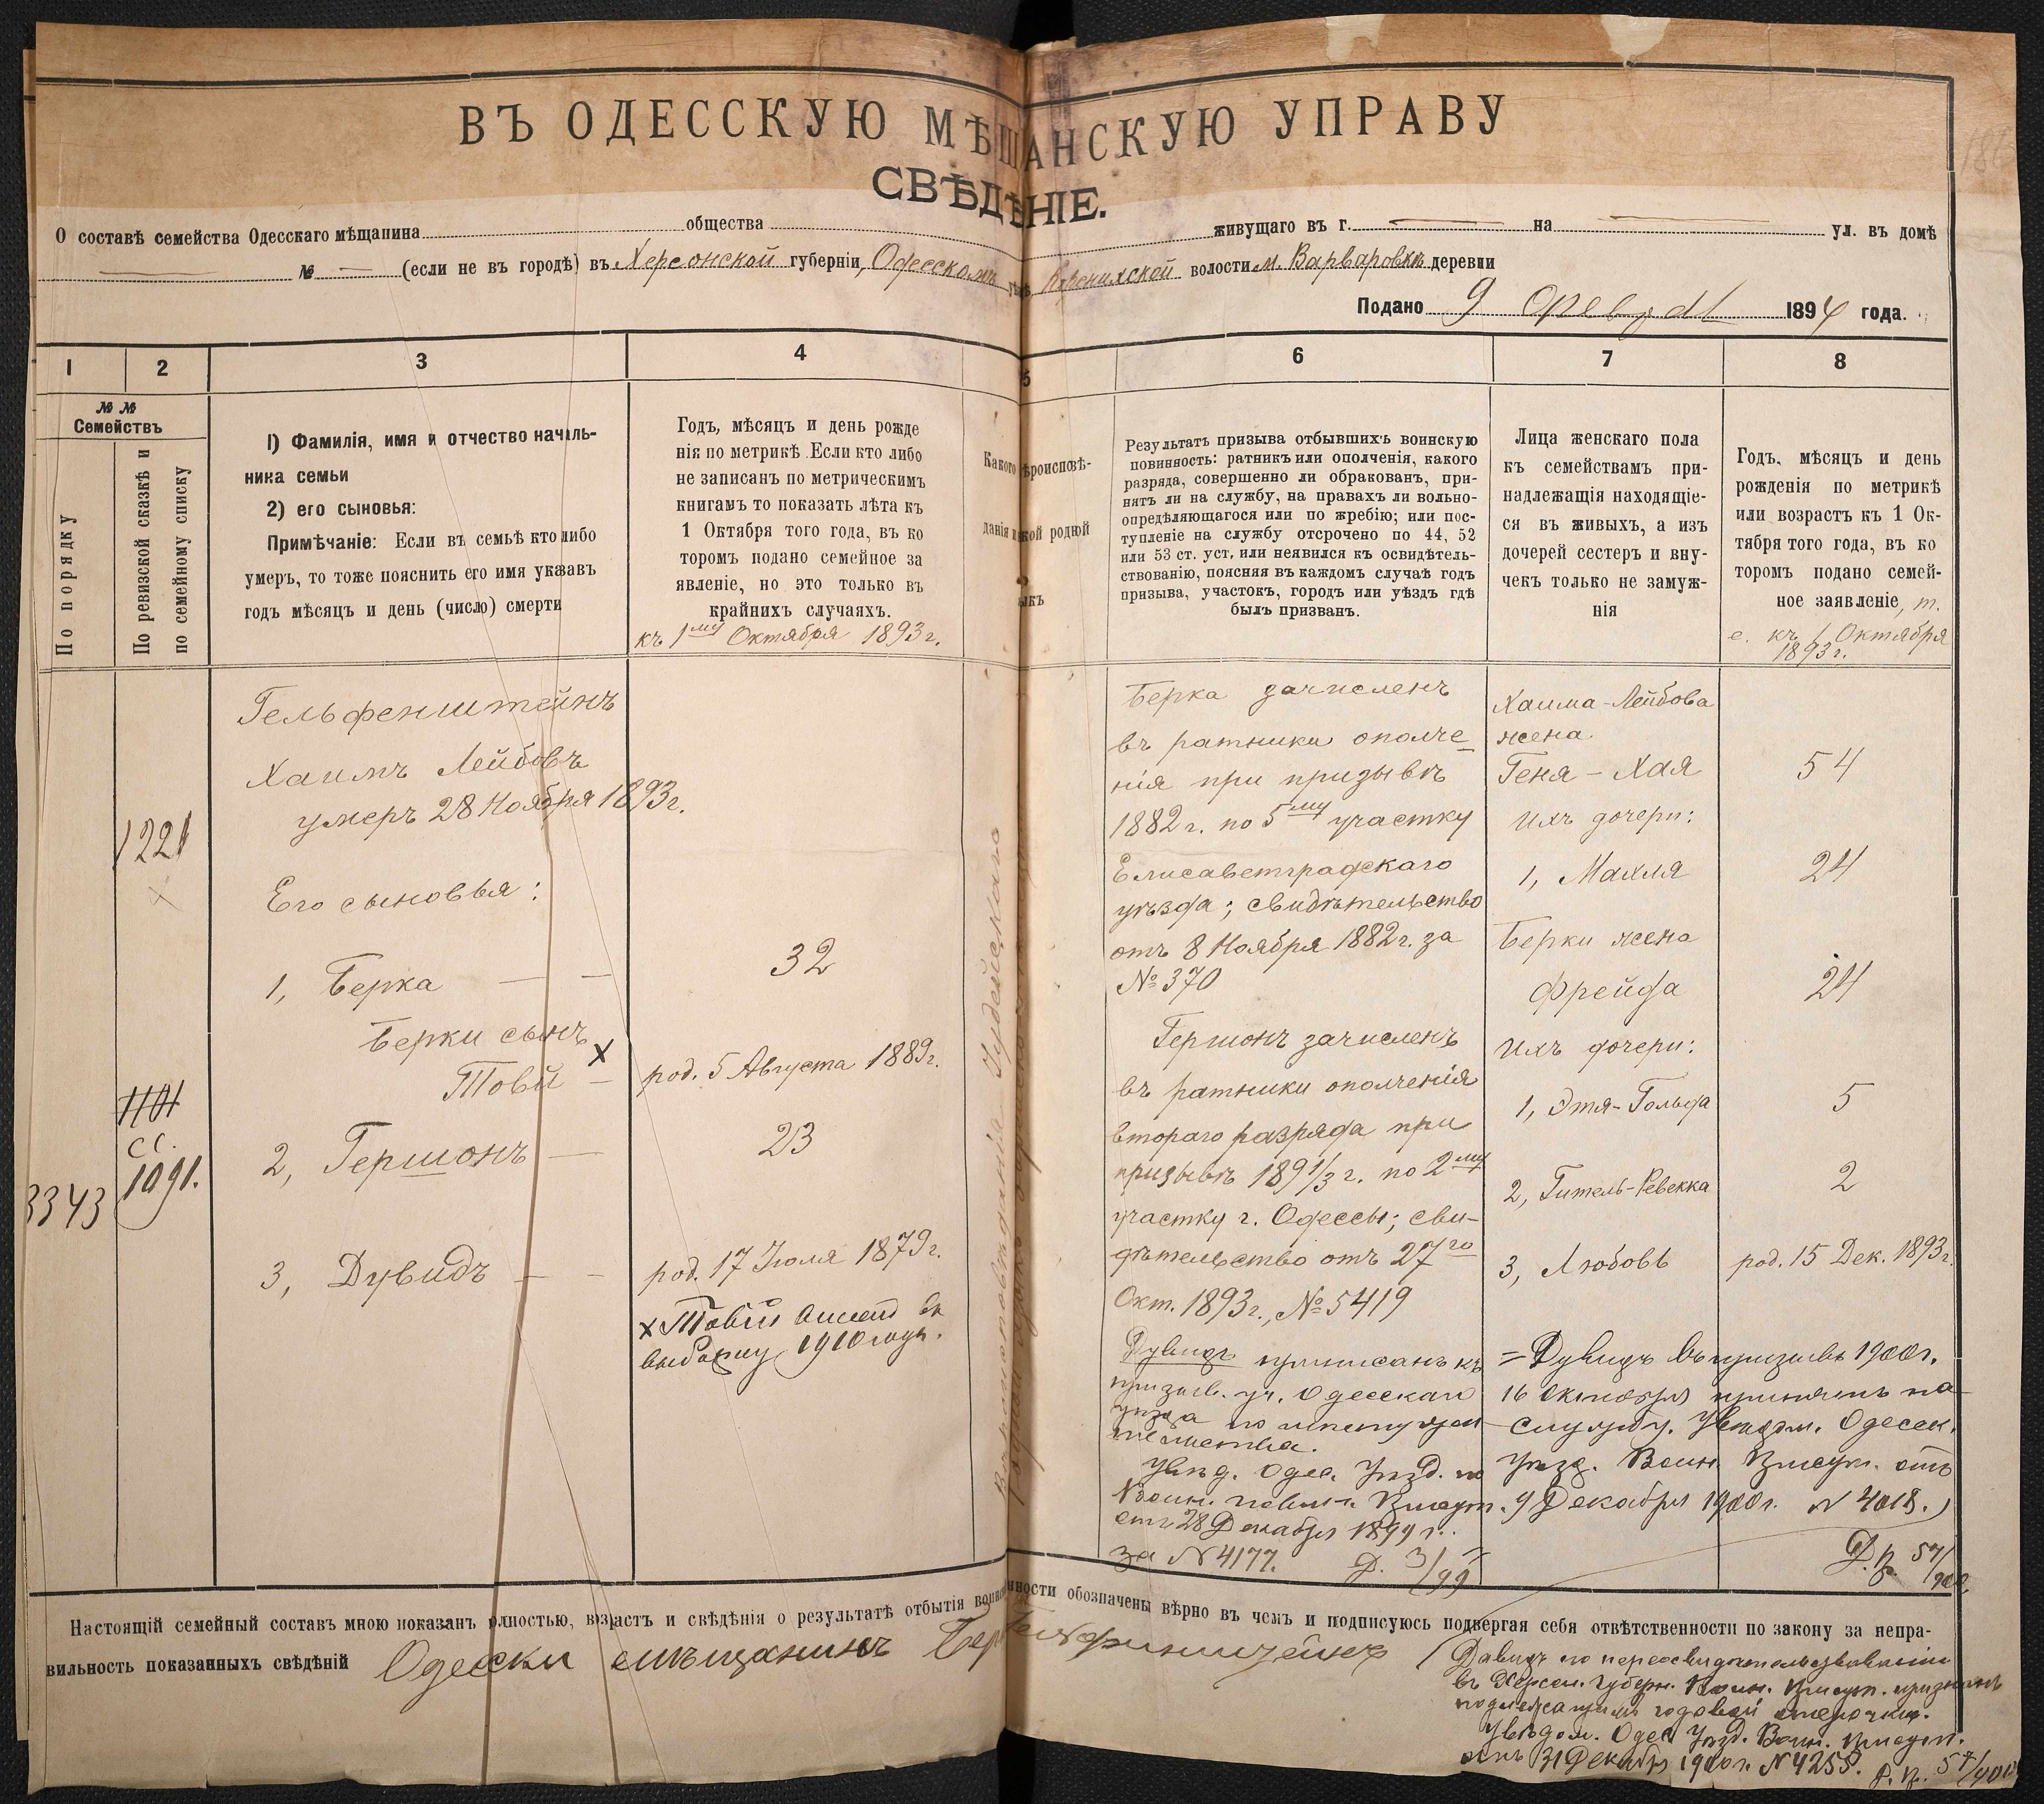 ВЪ ОДЕССКУЮ МѢЩАНСКУЮ УПРАВУ
СВѢДѢНІЕ.
О составѣ семейства Одесскаго мѣщанина общества живущаго въ г. на ул. въ домѣ
№ — (если не въ городѣ) въ Херсонской губерніи, Одесскомъ волости м. Варваровкѣ деревни
Подано 9 1894 года.
1 2 3 4 5 6 7 8
№ №
Семействъ
По порядку
По ревизской сказкѣ и
по семейному списку
1) Фамилія, имя и отчество началь-
ника семьи
2) его сыновья:
Примѣчаніе: Если въ семьѣ кто либо
умеръ, то тоже пояснить его имя указавъ
годъ мѣсяцъ и день (число) смерти
Годъ, мѣсяцъ и день рожде
нія по метрикѣ. Если кто либо
не записанъ по метрическимъ
книгамъ то показать лѣта къ
1 Октября того года, въ ко
торомъ подано семейное за
явленіе, но это только въ
крайнихъ случаяхъ.
къ 1му Октября 1893 г.
Какого вѣроисповѣ-
данія и какой родной
языкъ
Результатъ призыва отбывшихъ воинскую
повинность: ратникъ или ополченія, какого
разряда, совершенно ли обракованъ, при-
нятъ ли на службу, на правахъ ли вольно-
опредѣляющагося или по жребію; или пос-
тупленіе на службу отсрочено по 44, 52
или 53 ст. уст, или неявился къ освидѣтель-
ствованію, поясняя въ каждомъ случаѣ годъ
призыва, участокъ, городъ или уѣздъ гдѣ
былъ призванъ.
Лица женскаго пола
къ семействамъ при-
надлежащія находящіе-
ся въ живыхъ, а изъ
дочерей сестеръ и вну-
чекъ только не замуж-
нія
Годъ, мѣсяцъ и день
рожденія по метрикѣ
или возрастъ къ 1 Ок-
тября того года, въ ко
торомъ подано семей-
ное заявленіе, т.
е. къ 1 Октября
1893 г.
1221
1101
сс.
1091.
3343
Гельфенштейнъ
Хаимъ Лейбовъ
умеръ 28 Ноября 1893 г.
Его сыновья:
1, Берка — — 32
Берки сынъ
Товій x — род. 5 Августа 1889 г.
2, Гершонъ — 23
3, Дувидъ — — род. 17 Іюля 1879 г.
x Товій
выборку 1910 года.
Вѣроисповѣданія Іудейскаго
Берка зачисленъ
въ ратники ополче-
нія при призывѣ
1882 г. по 5му участку
Елисаветградскаго
уѣзда; свидѣтельство
отъ 8 Ноября 1882 г. за
№ 370
Гершонъ зачисленъ
въ ратники ополченія
втораго разряда при
призывѣ 1891/3 г. по 2му
участку г. Одессы; сви-
дѣтельство отъ 27го
Окт. 1893 г., № 5419
Дувидъ приписанъ къ
призыв. уч. Одесскаго
уѣзда по
Увѣд. Одес. Уѣзд. по
Воин. повин. Присут.
отъ 28 Декабря 1899 г.
за N 4177.
Хаима-Лейбова
жена
Геня-Хая 54
Ихъ дочери:
1, Махля 24
Берки жена
Фрейда 24
Ихъ дочери:
1, Этя-Гольда 5
2, Гитель-Ревекка 2
3, Любовь род. 15 Дек. 1893 г.
= Дувидъ въ призывъ 1900 г.
16 Октября принятъ на
службу. Увѣдом. Одесск.
Уѣзд. Воин. Присут. отъ
9 Декабря 1900 г. N 4018.
Настоящій семейный составъ мною показанъ полностью, возрастъ и свѣдѣнія о результатѣ отбытія воинской повинности обозначены вѣрно въ чемъ и подписуюсь подвергая себя отвѣтственности по закону за непра-
вильность показанныхъ свѣдѣній Одески мѣщанинъ Берка Гельфинштейнъ
Давидъ по переосвидѣтельствованіи
въ Херсон. Губерн. Воин. Присут. признанъ
подлежащимъ годовой отсрочкѣ.
Увѣдом. Одес. Уѣзд. Воин. Присут.
отъ 31 Декабря 1900 г. N 4255.